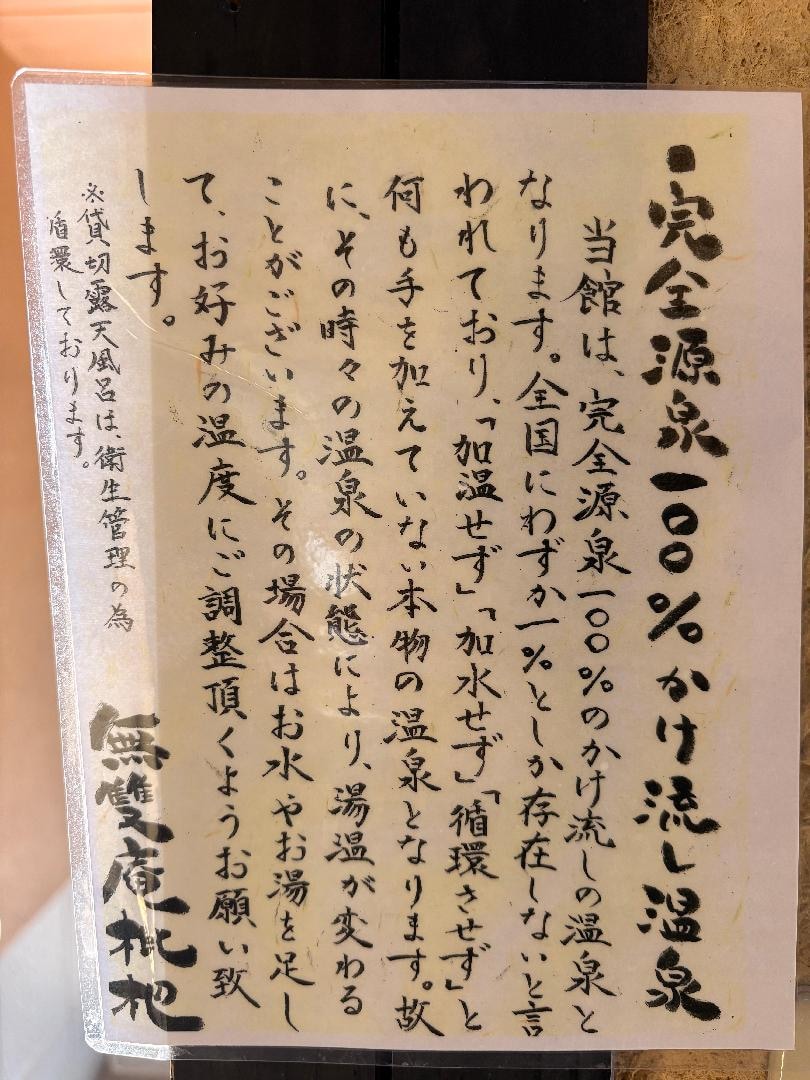 ■完全源泉一〇〇%かけ流し温泉
当館は、完全源泉一〇〇%のかけ流しの温泉と
なります。全国にわずか一%としか存在しないと言
われており、「加温せず」「加水せず」「循環させず」と
何も手を加えていない本物の温泉となります。故
に、その時々の温泉の状態により、湯温が変わる
ことがございます。その場合はお水やお湯を足し
て、お好みの温度にご調整頂くようお願い致
します。
※貸切露天風呂は、衛生管理の為
循環しております。
無雙庵枇杷